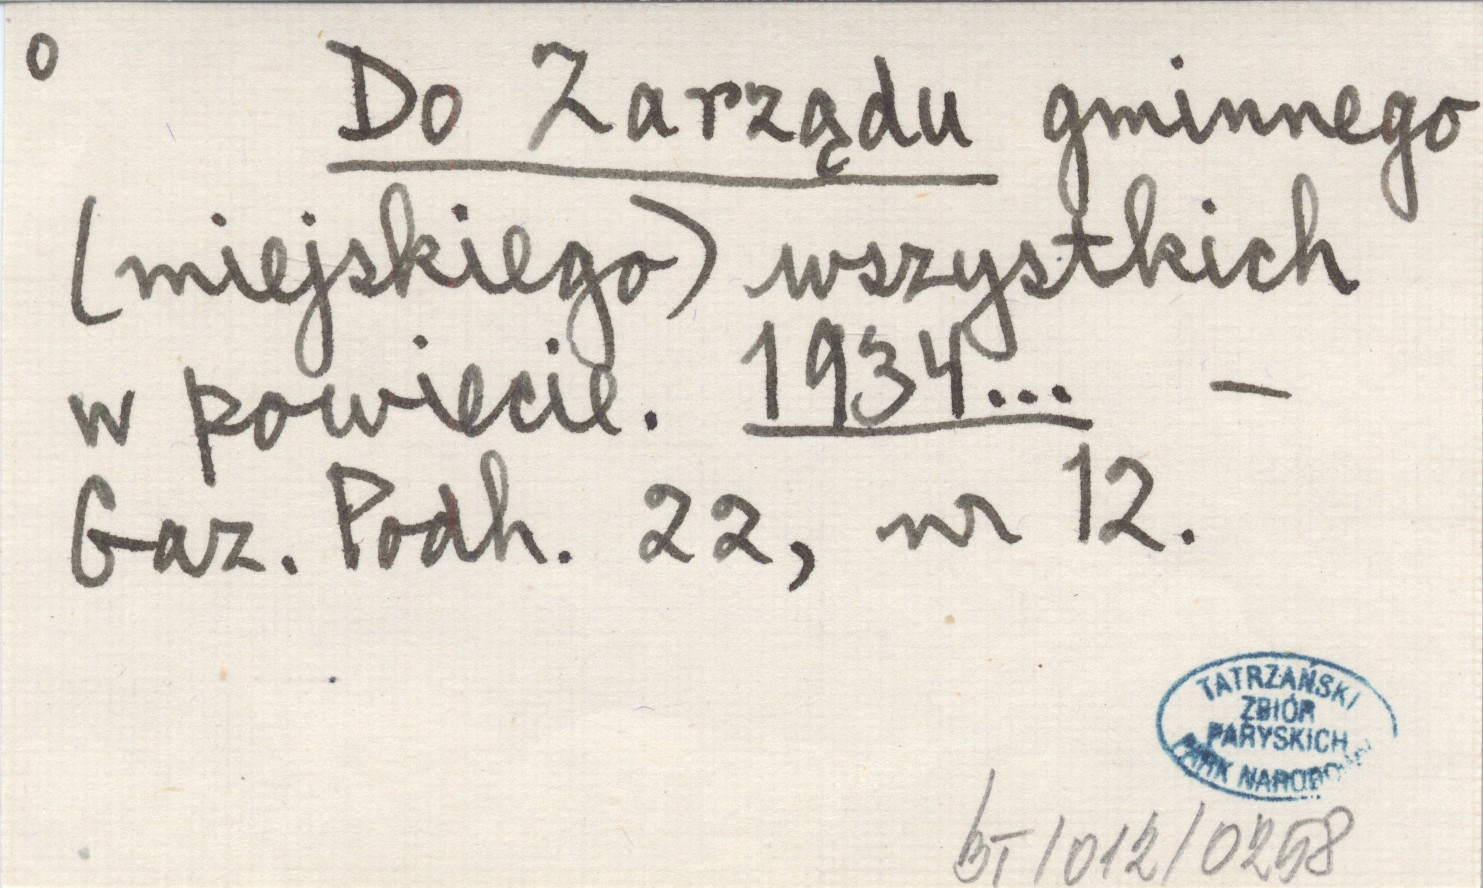 o Do Zarządu gminnego
(miejskiego) wszystkich
w powiecie. 1934... —
Gaz. Podh. 22, nr 12.
TATRZAŃSKI
ZBIÓR
PARYSKICH
PARK NARODOWY
BT/012/0258